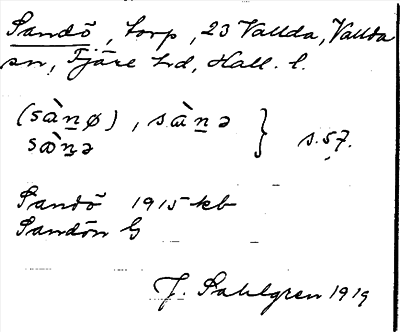 Sandö, torp, 23 Vallda, Vallda
sn, Fjäre hd, Hall. l.
(sàn̠ø), sàn̠ə } s. 57.
sæ̀n̠ə
Sandö 1915 kb
Sandön G
J. Sahlgren 1919